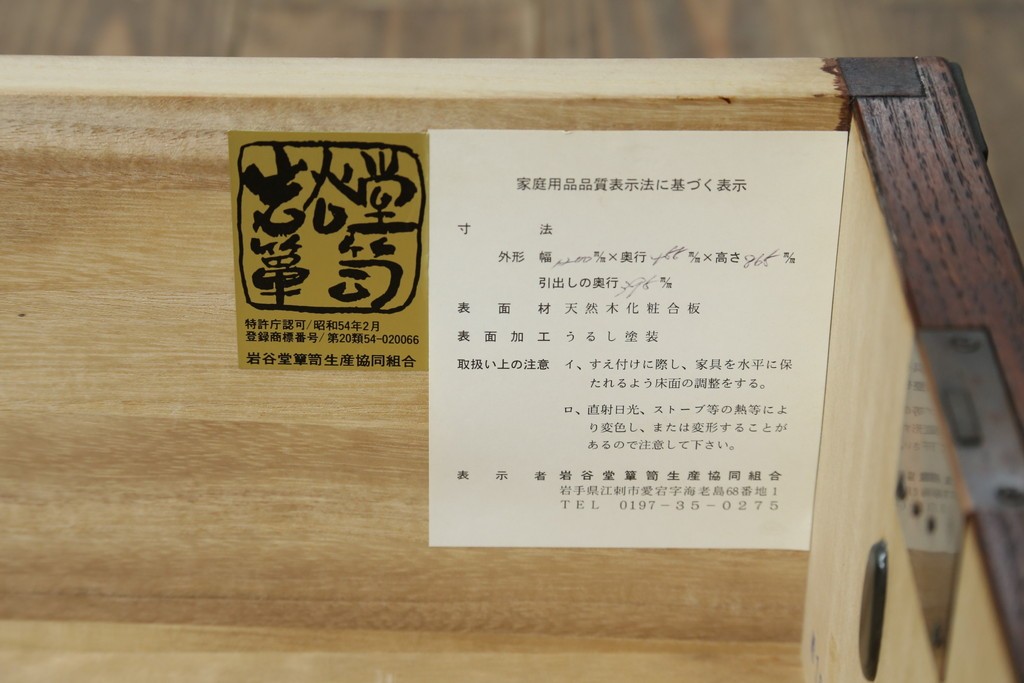 岩谷堂
簞笥
特許庁認可/昭和54年2月
登録商標番号/第20類54-020066
岩谷堂簞笥生産協同組合
家庭用品品質表示法に基づく表示
寸法
外形 幅 m/m×奥行 m/m×高さ 865 m/m
引出しの奥行 m/m
表面材 天然木化粧合板
表面加工 うるし塗装
取扱い上の注意 イ、すえ付けに際し、家具を水平に保
たれるよう床面の調整をする。
ロ、直射日光、ストーブ等の熱等によ
り変色し、または変形することが
あるので注意して下さい。
表示者 岩谷堂簞笥生産協同組合
岩手県江刺市愛宕字海老島68番地1
TEL 0197-35-0275